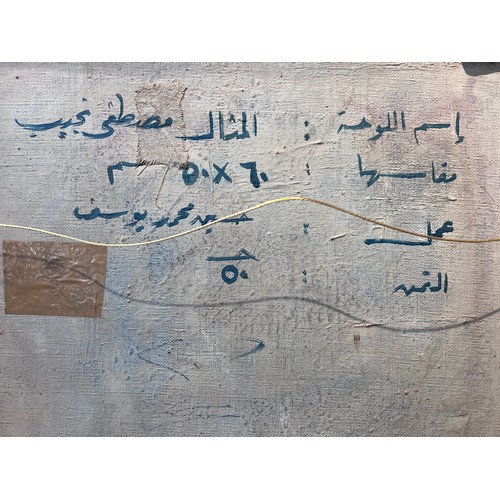 إسم اللوحة : المثال مصطفى نجيب
مقاسها : ٦٠ × ٥٠ سم
عمل : حسين محمد يوسف
الثمن : ٥٠